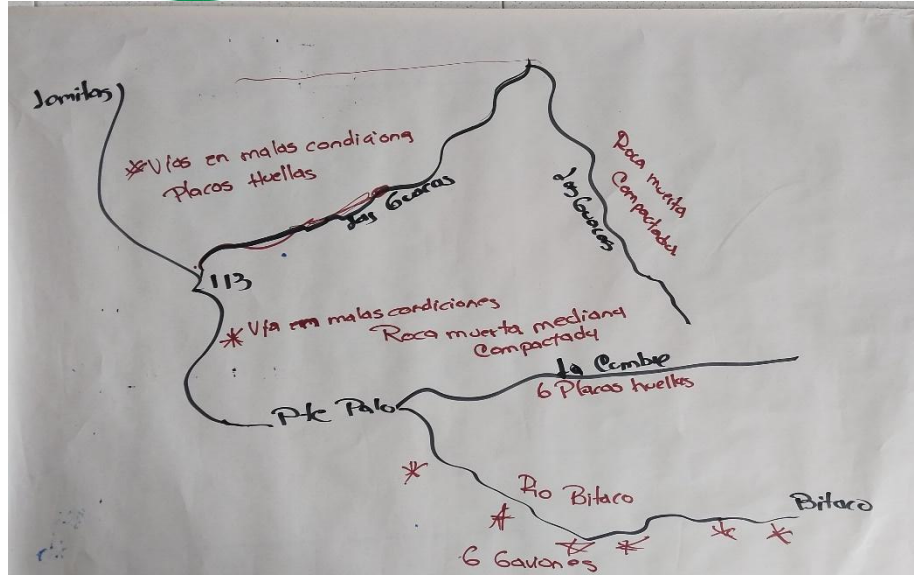 Lomitas
*Vías en malas condiciong
Placas Huellas
Las Guacas
Las Guacas
Roca muerta
Compactada
113
* Vía en malas condiciones
Roca muerta mediana
Compactada
La Cumbre
6 Placas huellas
Pte Palo
Rio Bitaco
Bitaco
6 Gavones